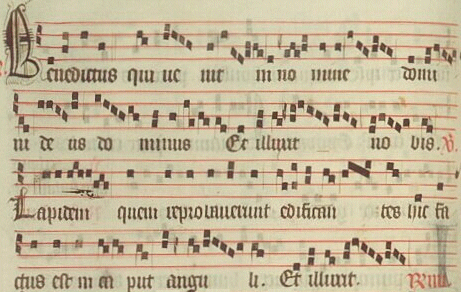 Benedictus qui ue nit in no mine domi
ni de us do minus Et illuxit no bis. V.
Lapidem quem reprobauerunt edifican tes hic fa
ctus est in ca put angu li. Et illuxit.